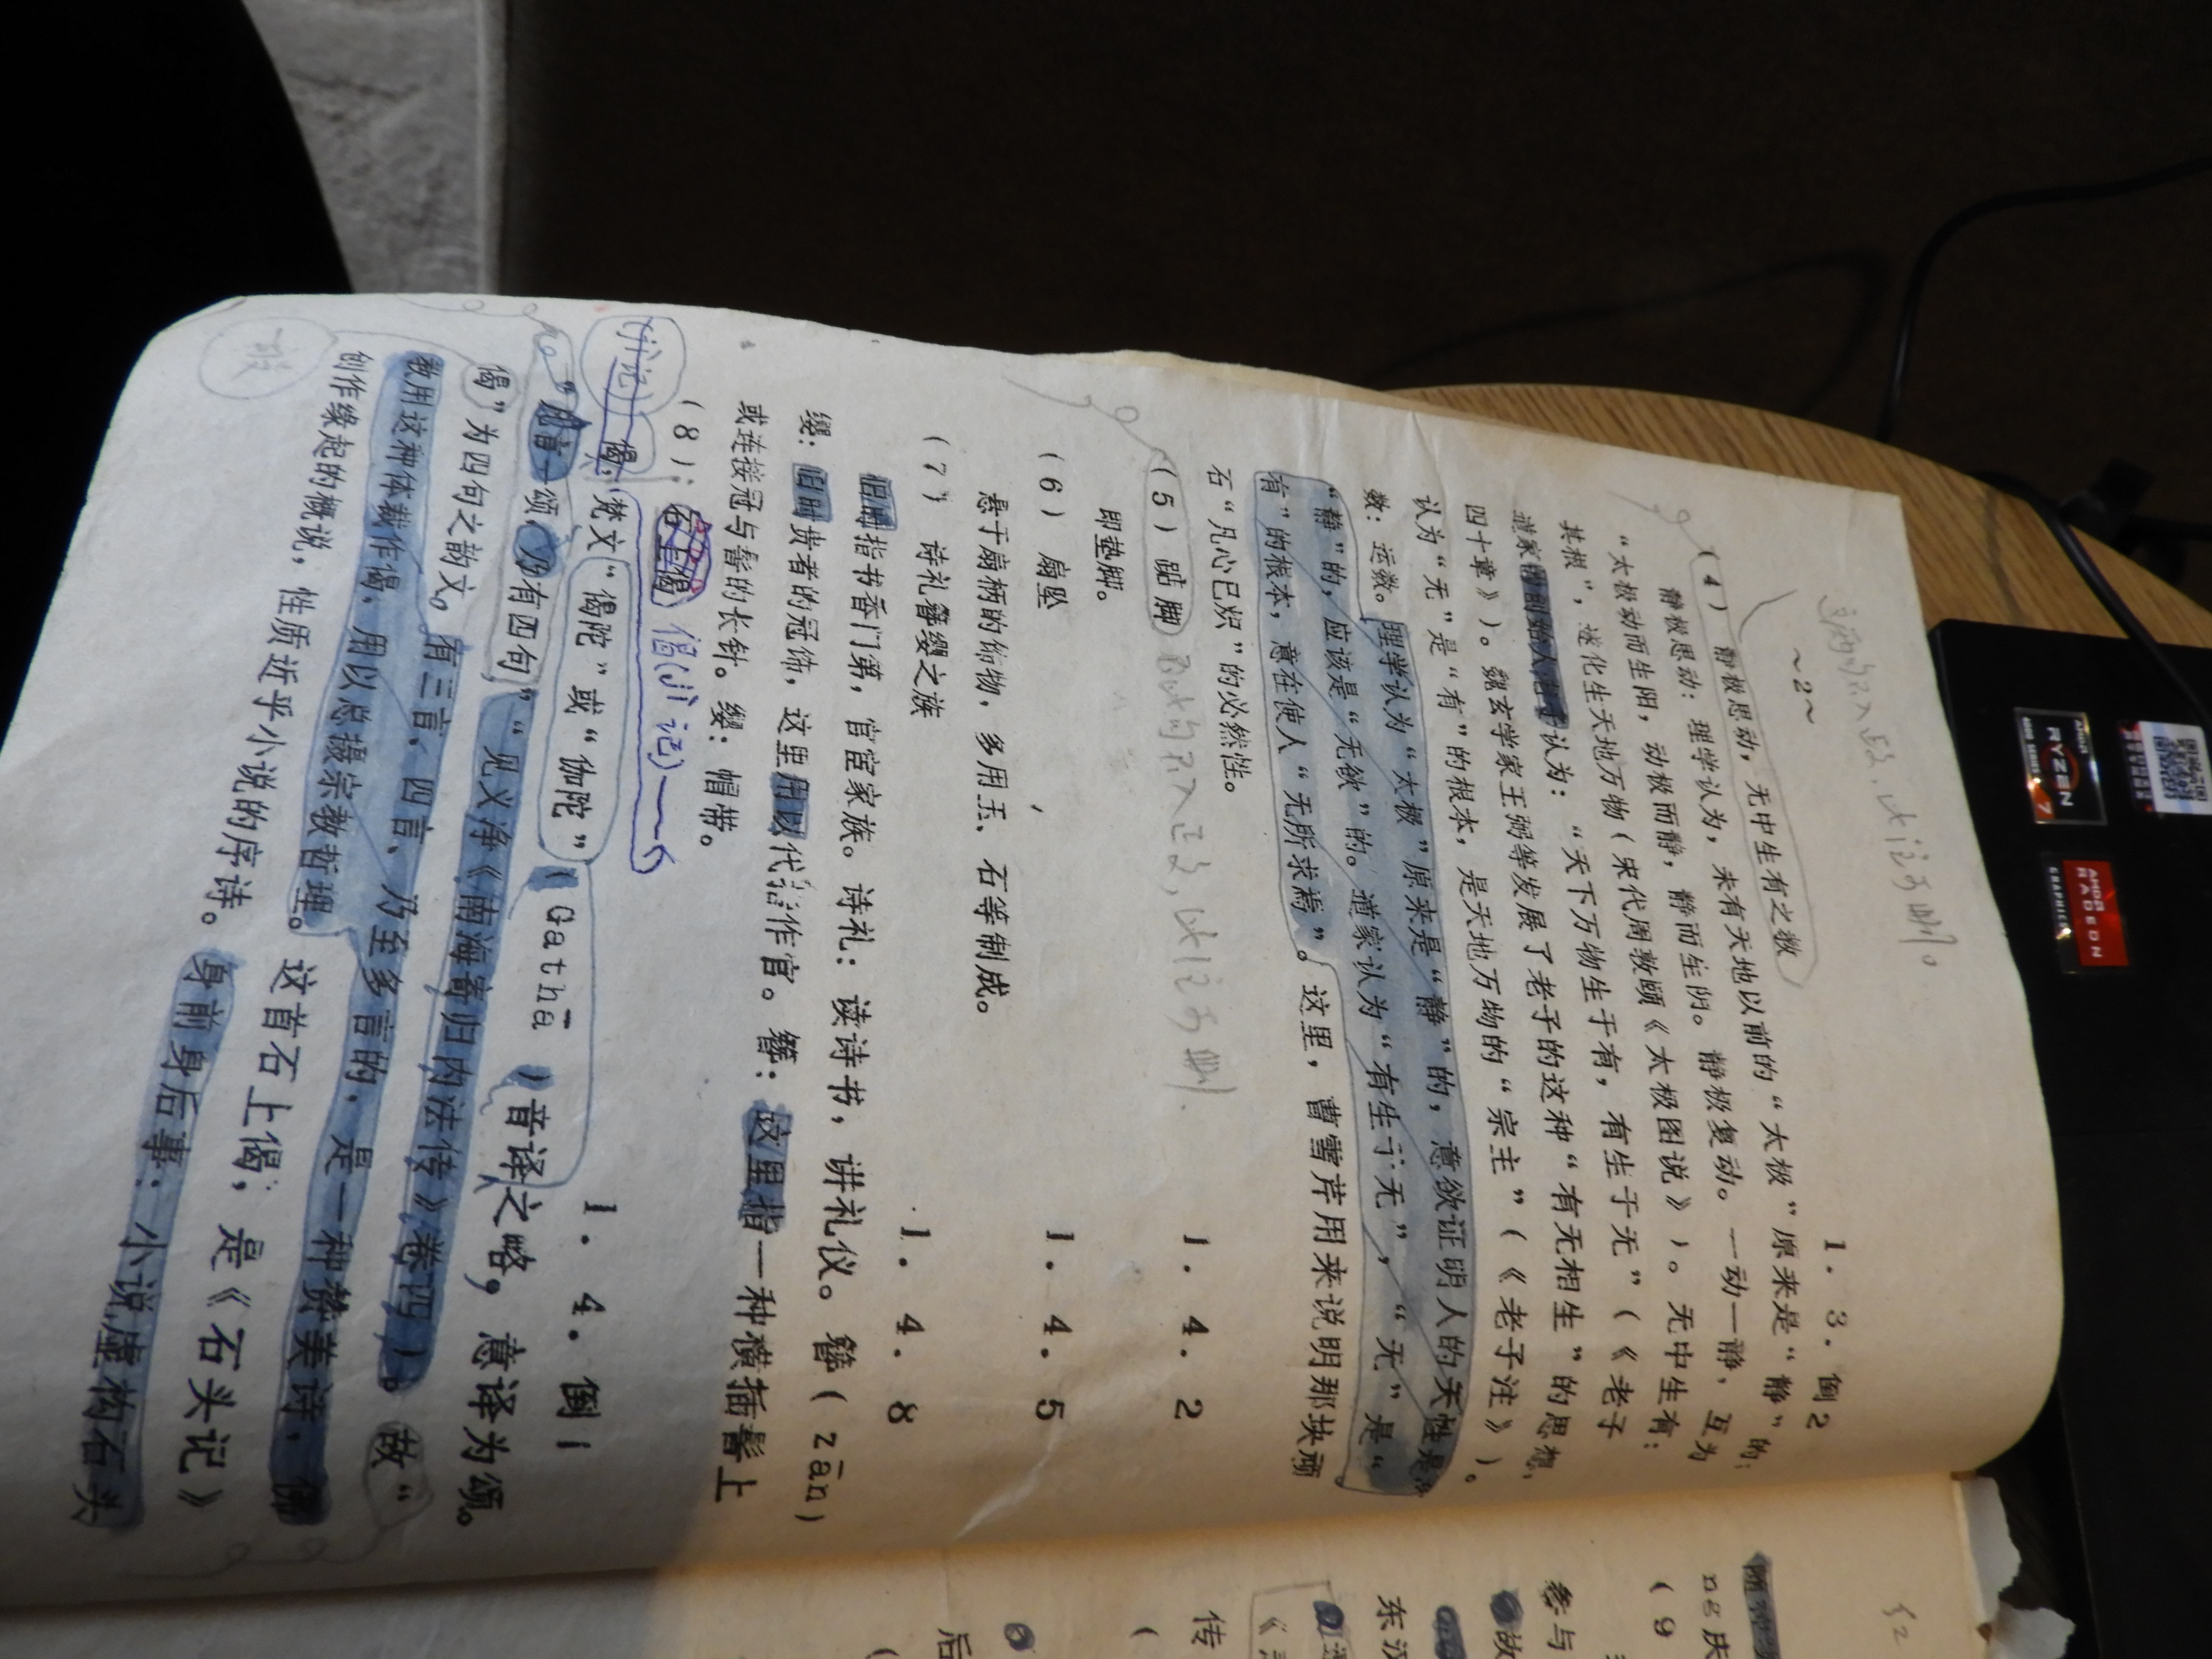 ~2~
(4) 静极思动,无中生有之数 1.3.倒2
静极思动:理学认为,未有天地以前的“太极”原来是“静”的;
“太极动而生阳,动极而静,静而生阴。静极复动。一动一静,互为
其根”,遂化生天地万物(宋代周敦颐《太极图说》)。无中生有:
道家的创始人老子认为:“天下万物生于有,有生于无”(《老子
四十章》)。魏玄学家王弼等发展了老子的这种“有无相生”的思想,
认为“无”是“有”的根本,是天地万物的“宗主”(《老子注》)。
数:运数。理学认为“太极”原来是“静”的,意欲证明人的天性是
“静”的,应该是“无欲”的。道家认为“有生于无”,“无”是“
有”的根本,意在使人“无所求焉”。这里,曹雪芹用来说明那块顽
石“凡心已炽”的必然性。
(5) 踮脚 1.4.2
即垫脚。
(6) 扇坠 1.4.5
悬于扇柄的饰物,多用玉、石等制成。
(7) 诗礼簪缨之族 1.4.8
旧时指书香门第,官宦家族。诗礼:读诗书,讲礼仪。簪(zān)
缨:旧时贵者的冠饰,这里用以代指作官。簪:这里指一种横插髻上
或连接冠与髻的长针。缨:帽带。
(8) 石上偈 偈(jì 记) 1.4.倒1
(jì记) 偈:梵文“偈陀”或“伽陀”(Gathā)音译之略,意译为颂。
一颂,乃有四句”“见义净《南海寄归内法传》卷四)。故“
偈”为四句之韵文。有三言、四言、乃至多言的,是一种赞美诗,佛
教用这种体裁作偈,用以总摄宗教哲理。这首石上偈,是《石头记》
创作缘起的概说,性质近乎小说的序诗。身前身后事:小说虚构石头
AMD
RYZEN
7
AMD
RADEON
GRAPHICS
(9
ng庆
参与
故
东汉
传
(
后
(